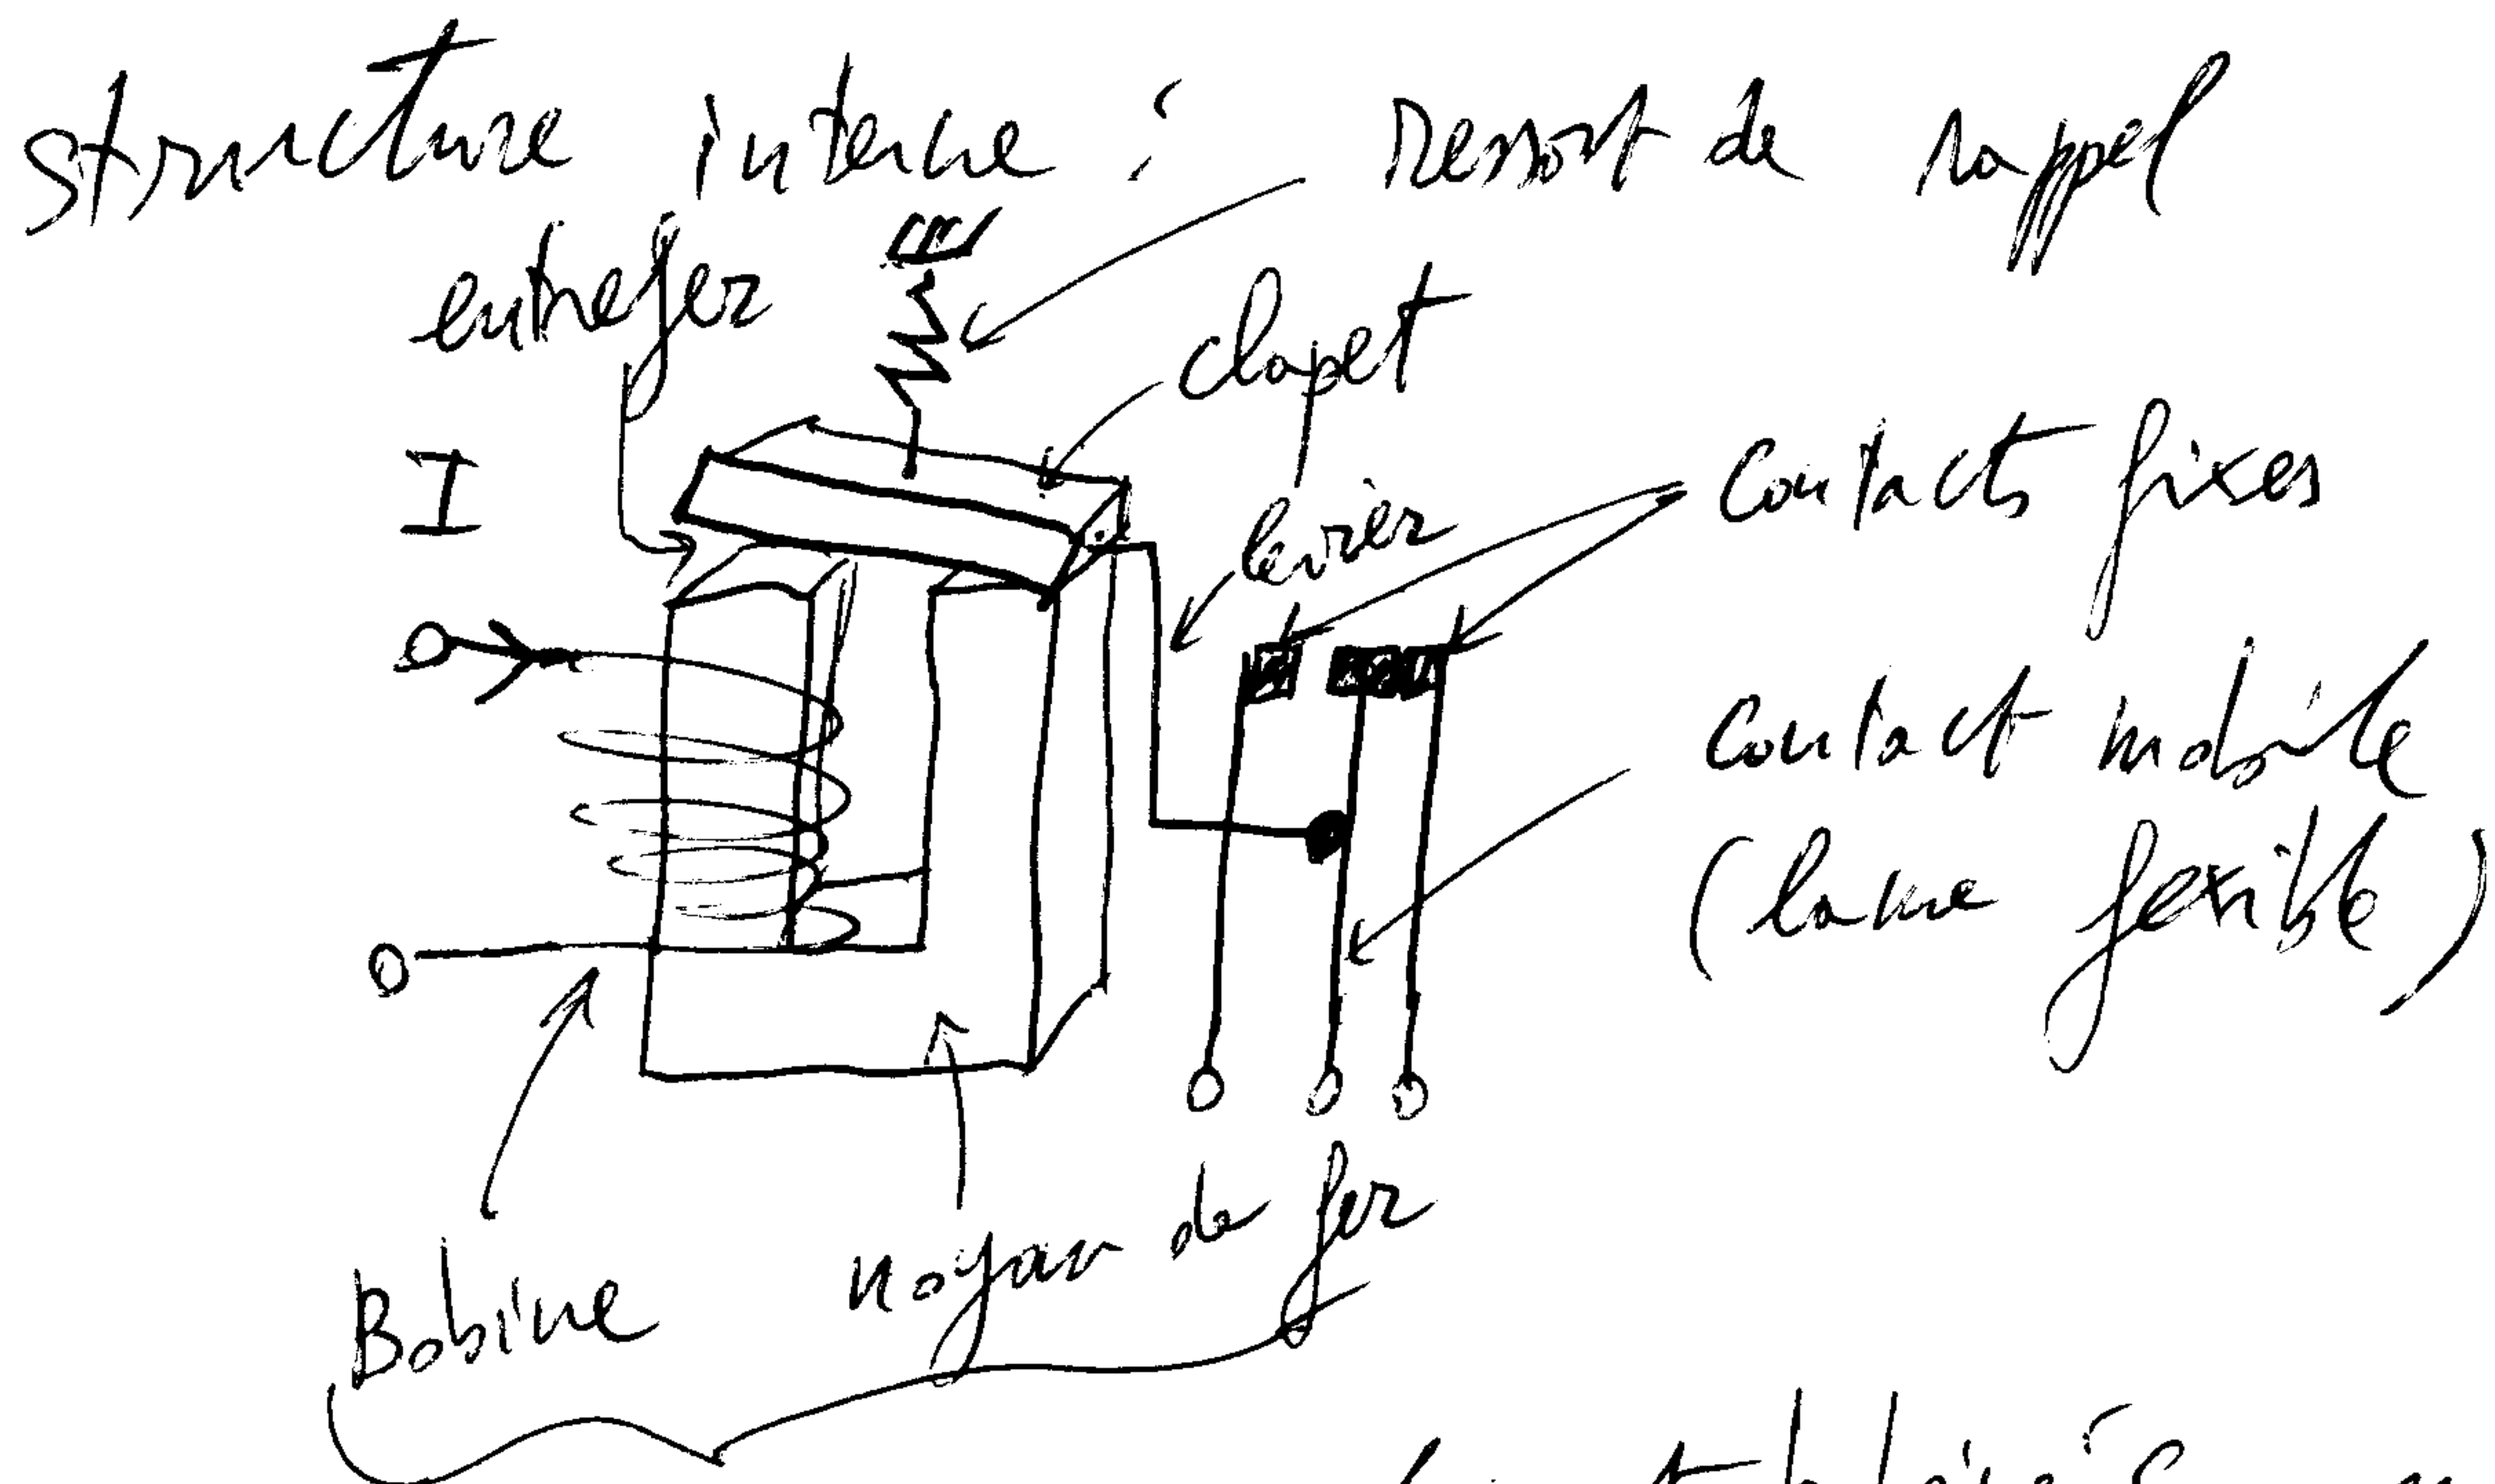 structure interne : Ressort de rappel
entrefer
clapet
I
levier
Contacts fixes
Contact mobile
(lame flexible)
noyau de fer
Bobine